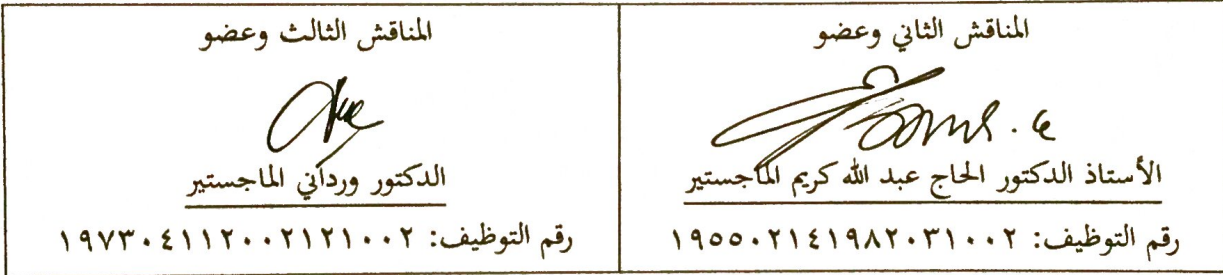 المناقش الثاني وعضو
الأستاذ الدكتور الحاج عبد الله كريم الماجستير
رقم التوظيف: ١٩٥٥٠٢١٤١٩٨٢٠٣١٠٠٢
المناقش الثالث وعضو
الدكتور ورداني الماجستير
رقم التوظيف: ١٩٧٣٠٤١١٢٠٠٢١٢١٠٠٢